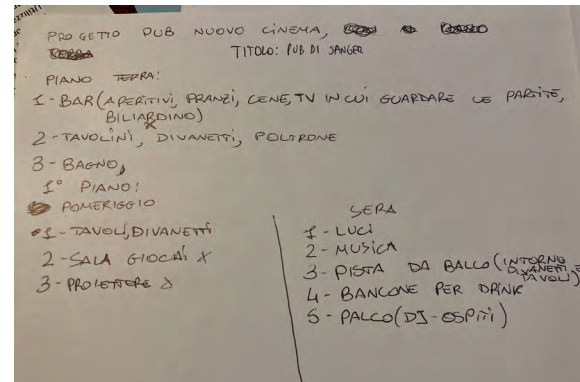 PROGETTO PUB NUOVO CINEMA,
TITOLO: PUB DI SANGER
PIANO TERRA:
1 - BAR (APERITIVI, PRANZI, CENE, TV IN CUI GUARDARE LE PARTITE,
BILIARDINO)
2 - TAVOLINI, DIVANETTI, POLTRONE
3 - BAGNO,
1° PIANO:
POMERIGGIO
1 - TAVOLI, DIVANETTI
2 - SALA GIOCAI X
3 - PROIETTERE
SERA
1 - LUCI
2 - MUSICA
3 - PISTA DA BALLO (INTORNO
DIVANETTI E
TAVOLI)
4 - BANCONE PER DRINK
5 - PALCO (DJ - OSPITI)